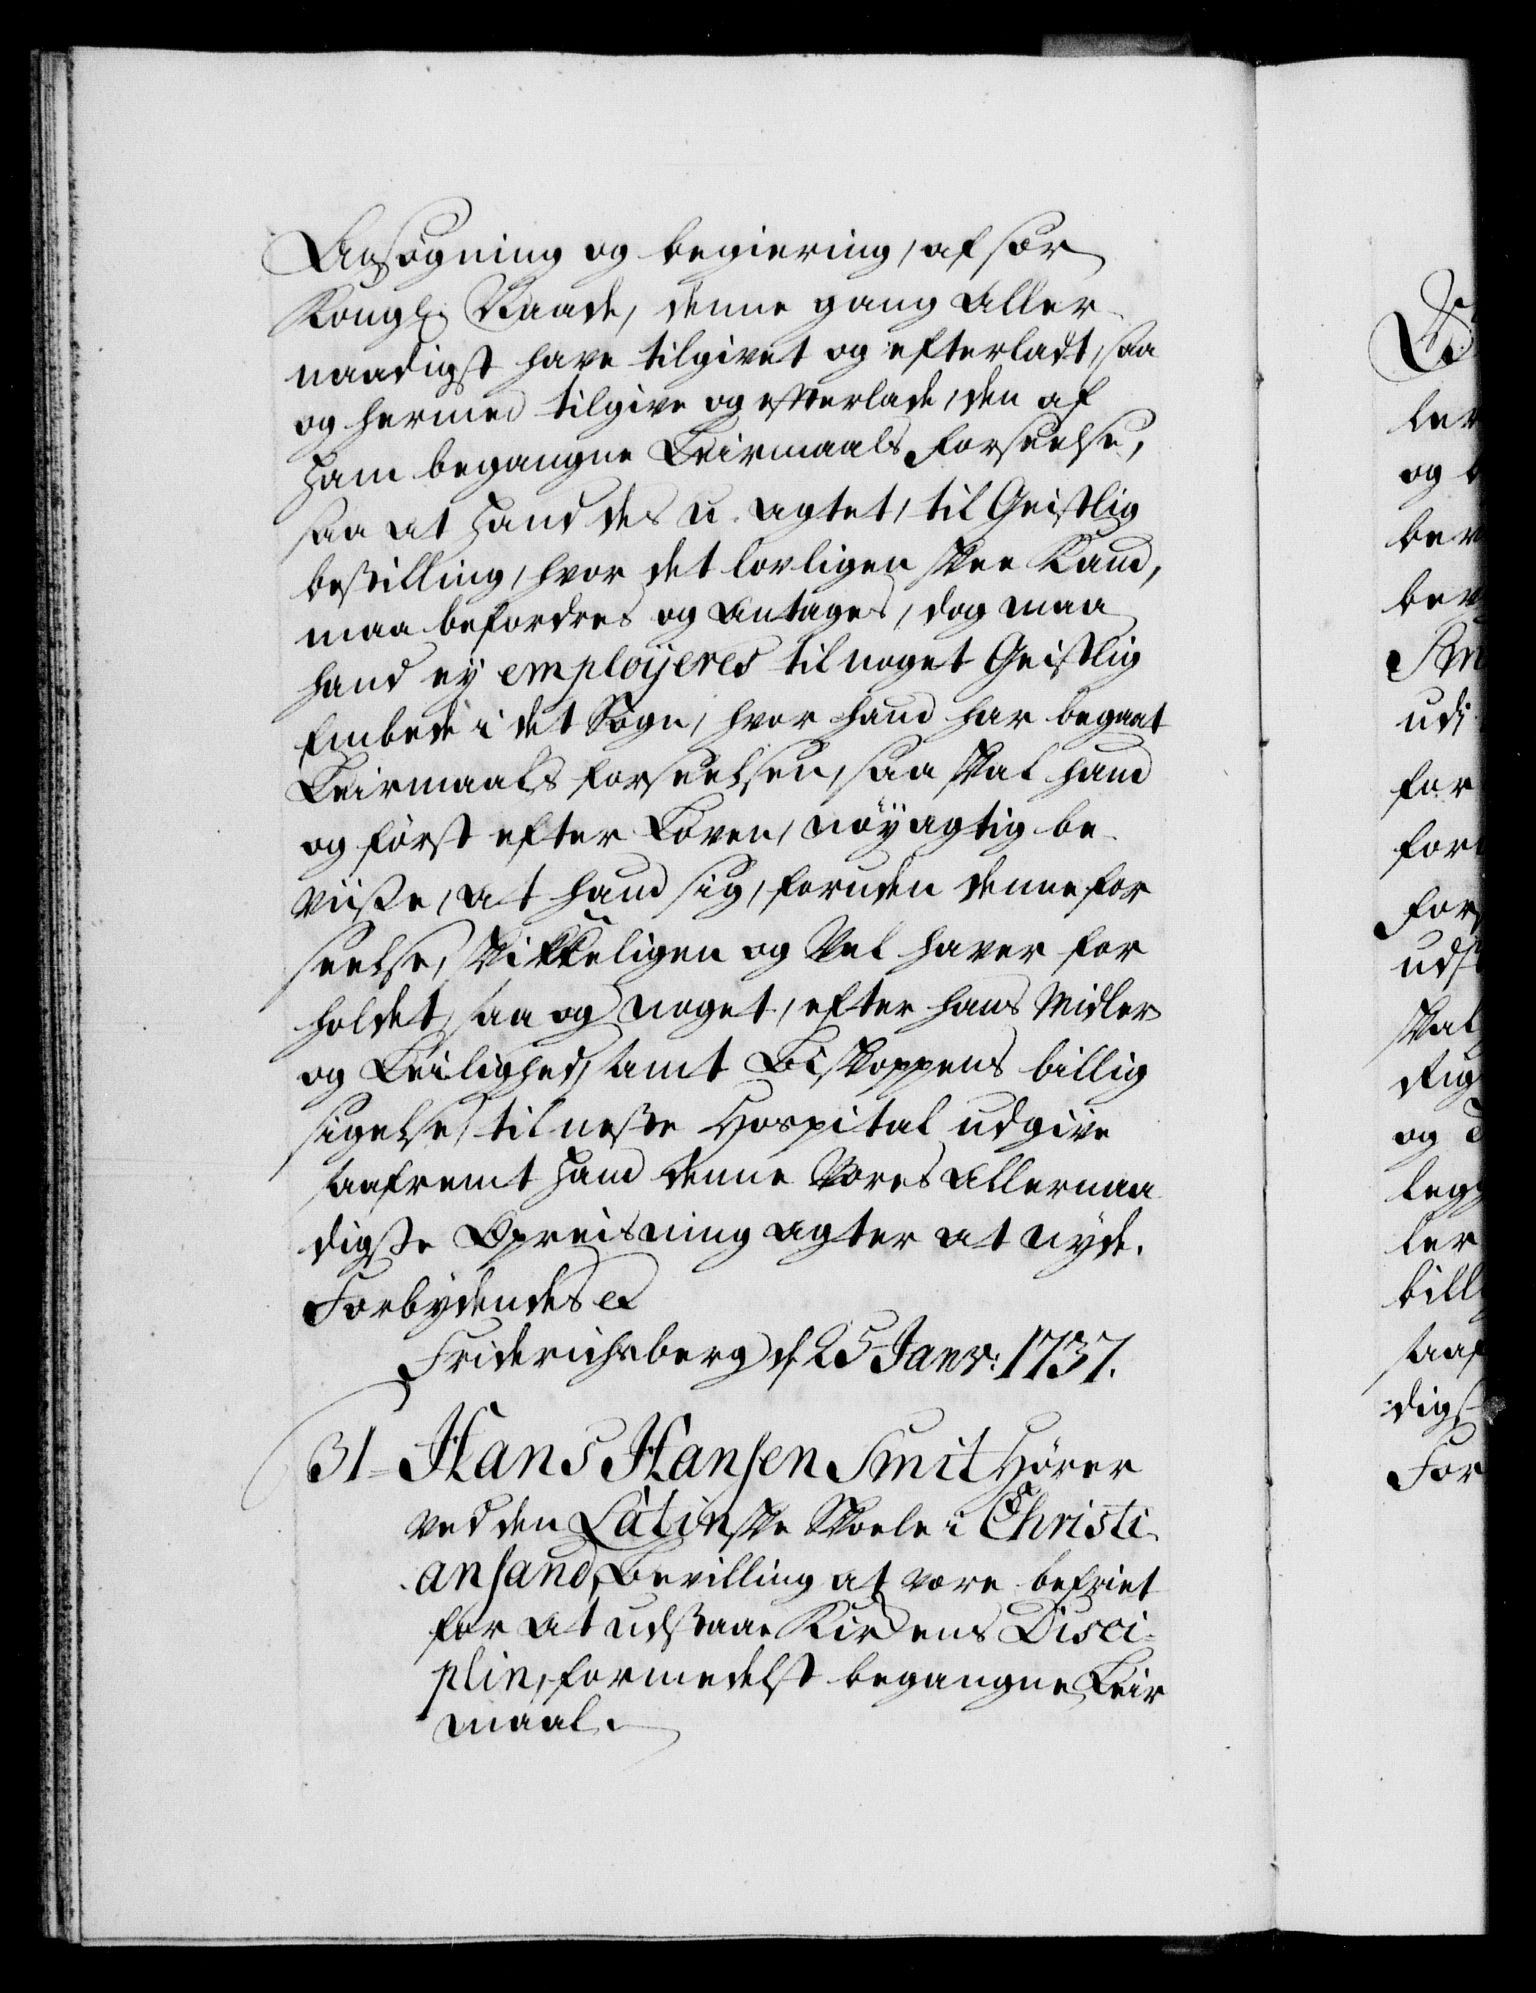 Ansøgning og begiering, af sær
Kongl: Naade, denne gang Aller-
naadigst have tilgivet og efterladt, saa
og hermed tilgive og efterlade, den af
ham begangne Leiermaals Forseelse,
saa at hand des u-agtet, til Geistlig
bestilling, hvor det lovligen skee Kand,
maa befordres og Antages, dog maa
hand ey employeres til noget Geistlig
Embede i det Sogn, hvor hand har begaaet
Leiermaals forseelsen, saa skal hand
og først efter Loven, nøyagtig be-
viisse, at hand sig, foruden denne for
seelse, skikkeligen og Vel haver for
holdet, saa og noget, efter hans Midler
og Leilighed, samt Biskoppens billig
sigelse, til neste Hospital udgive
saafremt hand denne Vores Allernaa
digste Opreisning agter at nyde.
Forbydendes &
Friderichsberg d. 25 Janv: 1737.
31- Hans Hansen Smit Hører
ved den Latinske Skoele i Christi-
ansand, Bevilling at være befriet
for at udstaae Kirkens Disci-
plin, formedelst begangne Leier
maal.
ler
og b
udi
for
for
skal
og
ler
bill
saaf
digst
For